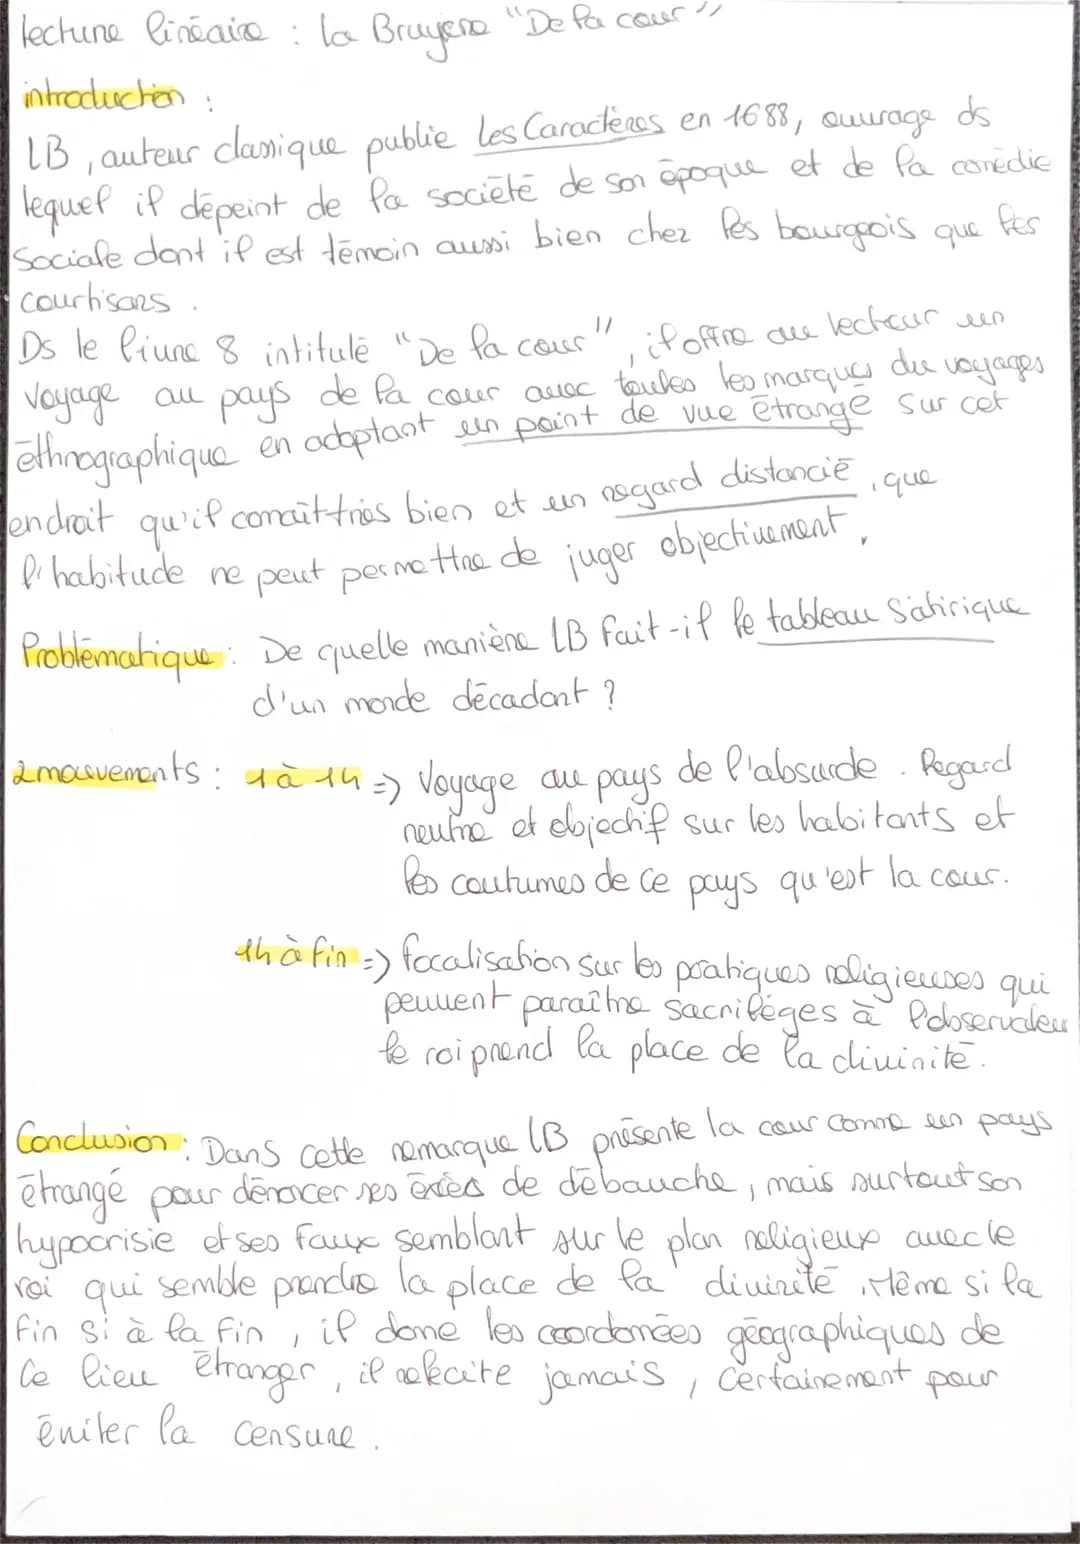 lecture linéaire : la Bruyere "De la cour"
introduction :
LB, auteur classique publie Les Caractères en 1688, ouvrage ds
lequel il dépeint de la société de son époque et de la comédie
Sociale dont il est témoin aussi bien chez les bourgeois que les
courtisans.
Ds le livre 8 intitulé "De la cour", il offre au lecteur un
voyage au pays de la cour avec toutes les marques du voyages
éthnographique en adoptant un point de vue étrangé sur cet
endroit qu'il connaît très bien et un regard distancié, que
l'habitude ne peut permettre de juger objectivement.
Problématique : De quelle manière LB fait-il le tableau Satirique
d'un monde décadant ?
2 mouvements : 1 à 14 => Voyage au pays de l'absurde. Regard
neutre et objectif sur les habitants et
les coutumes de ce pays qu'est la cour.
14 à fin => focalisation sur les pratiques religieuses qui
peuvent paraître sacrilèges à l'observateu
le roi prend la place de la divinité.
Conclusion : Dans cette remarque LB présente la cour comme un pays
étrangé pour dénoncer ses excès de débauche, mais surtout son
hypocrisie et ses faux semblant sur le plan religieux avec le
roi qui semble prendre la place de la divinité. Même si la
fin si à la fin, il donne les coordonées géographiques de
ce lieu étranger, il cite jamais, certainement pour
éviter la censure.